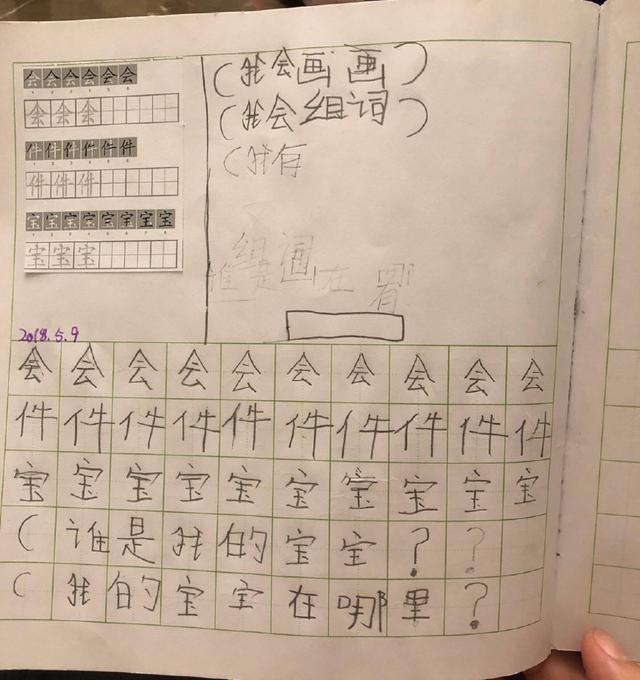 会会会会会会
1 2 3 4 5 6
会会会
件件件件件件
1 2 3 4 5 6
件件件
宝宝宝宝宝宝宝宝
1 2 3 4 5 6 7 8
宝宝宝
(我会画画)
(我会组词)
(我存
2018.5.9
会会会会会会会会会会
件件件件件件件件件件
宝宝宝宝宝宝宝宝宝宝
(谁是我的宝宝??
(我的宝宝在哪里?